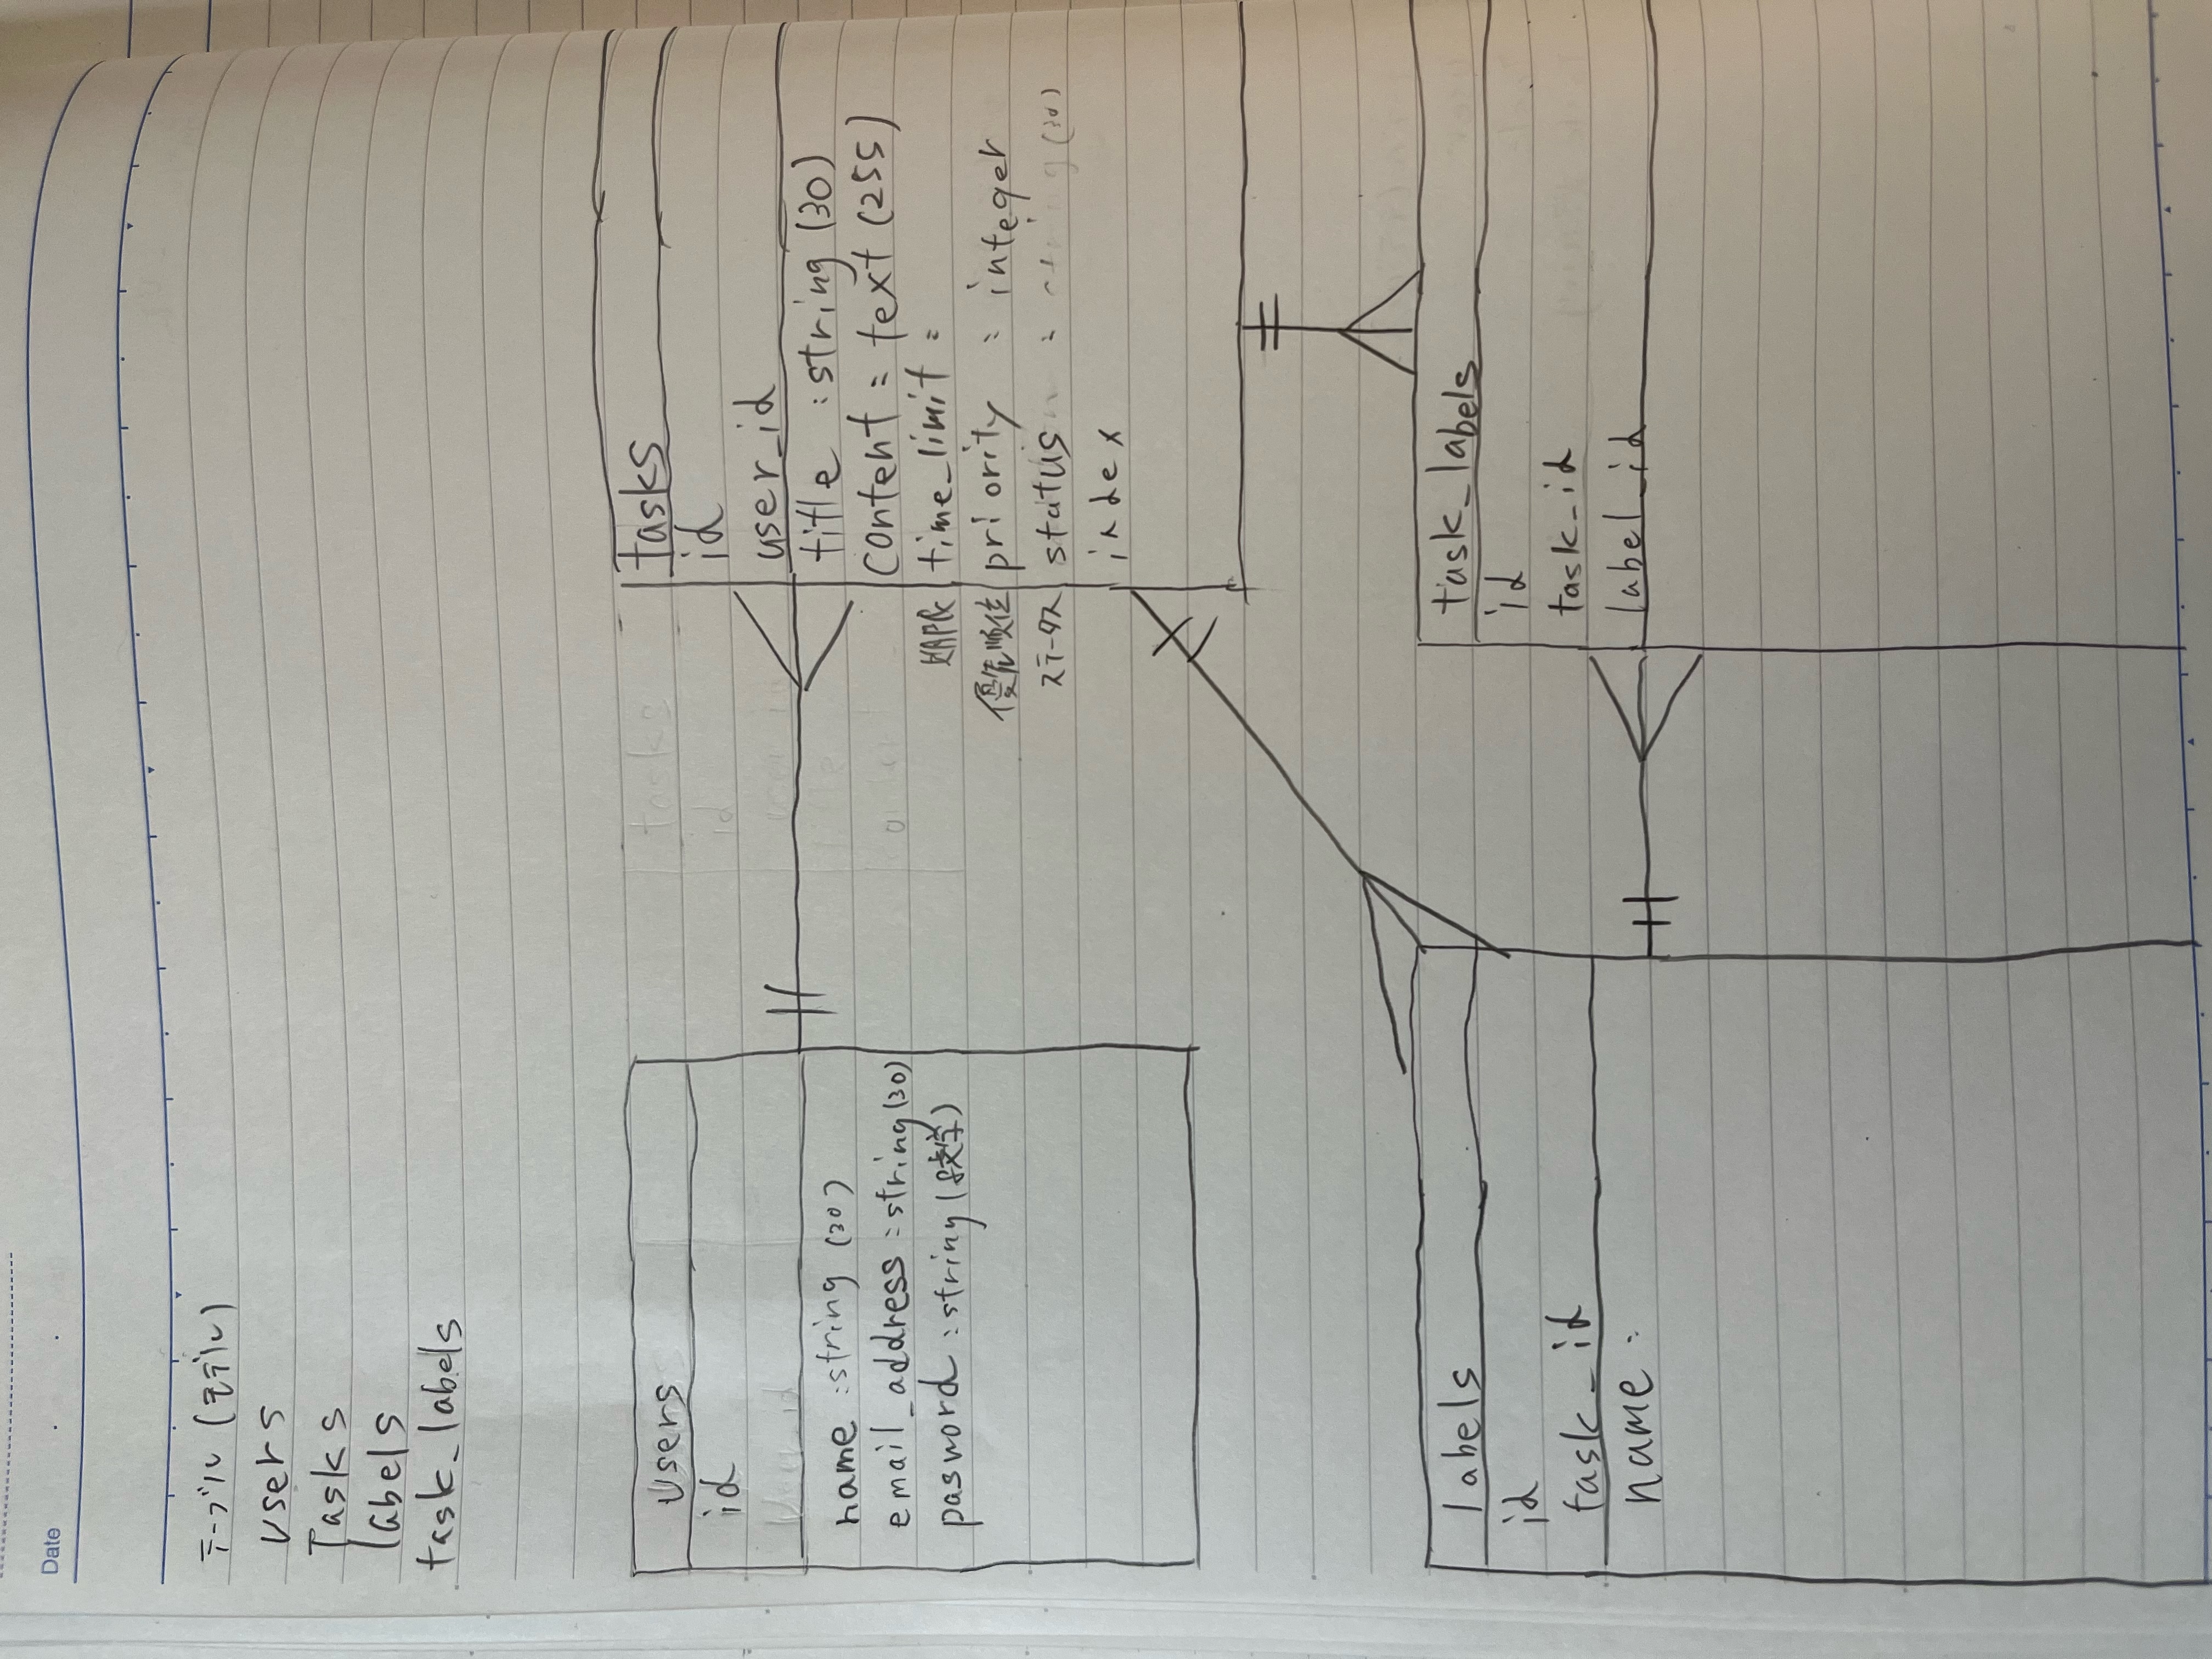 Date
テーブル (モデル)
users
Tasks
labels
task_labels
users
id
name :string (30)
email_address :string(30)
pasword :string
tasks
id
user_id
title :string (30)
content : text (255)
time_limit :
優先順位 priority : integer
ステータス status : string (30)
index
labels
id
task_id
name :
task_labels
id
task_id
label_id